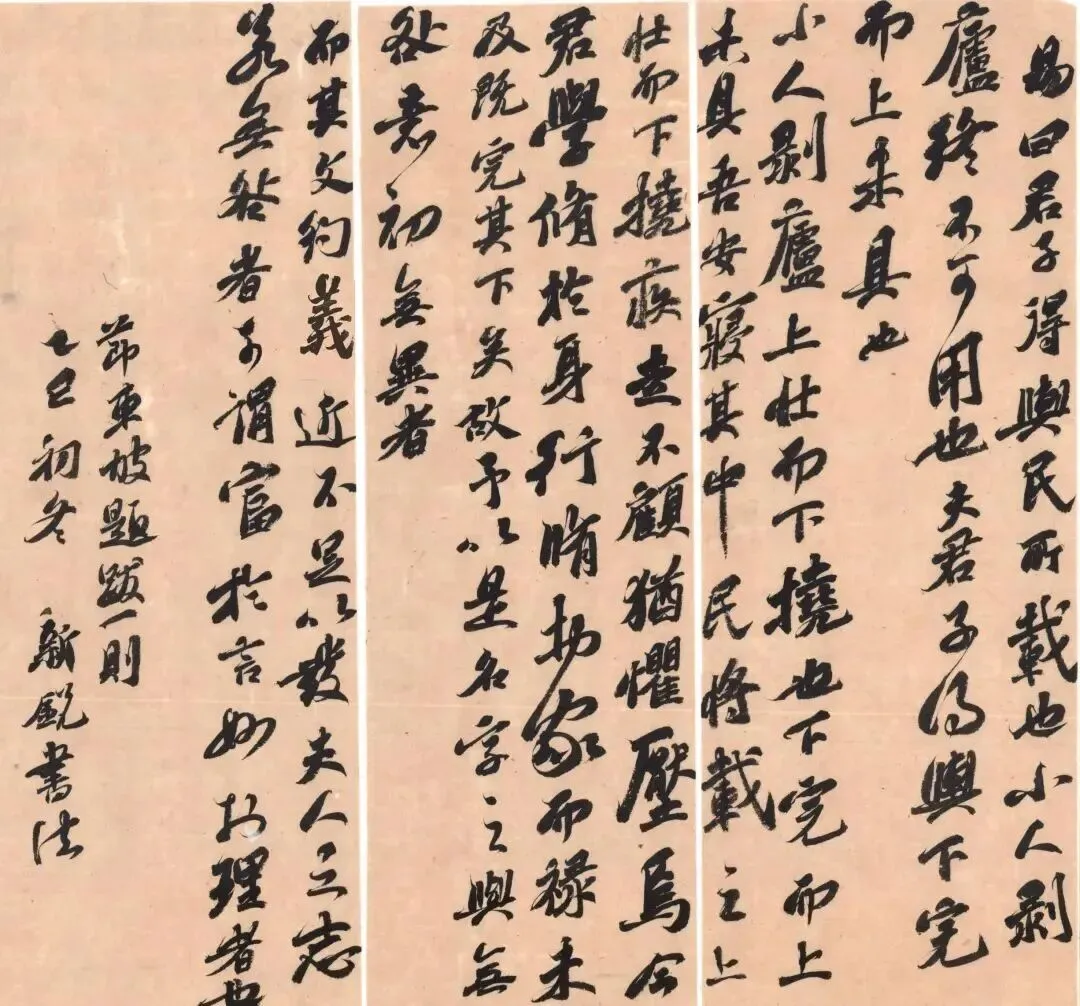 易曰君子得輿民所載也小人剥
廬終不可用也夫君子得輿下完
而上未具也
小人剥廬上壯而下撓也下完而上
未具吾安寢其中民將載之上
壯而下撓疾走不顧猶懼壓焉今
君學脩於身行脩於家而祿未
及既完其下矣故予以是名字之與無
咎意初無異者
而其文約義近不足以發夫人之志
若無咎者可謂富於言妙於理者也
節東坡題跋一則
乙巳初冬 新鋭書法